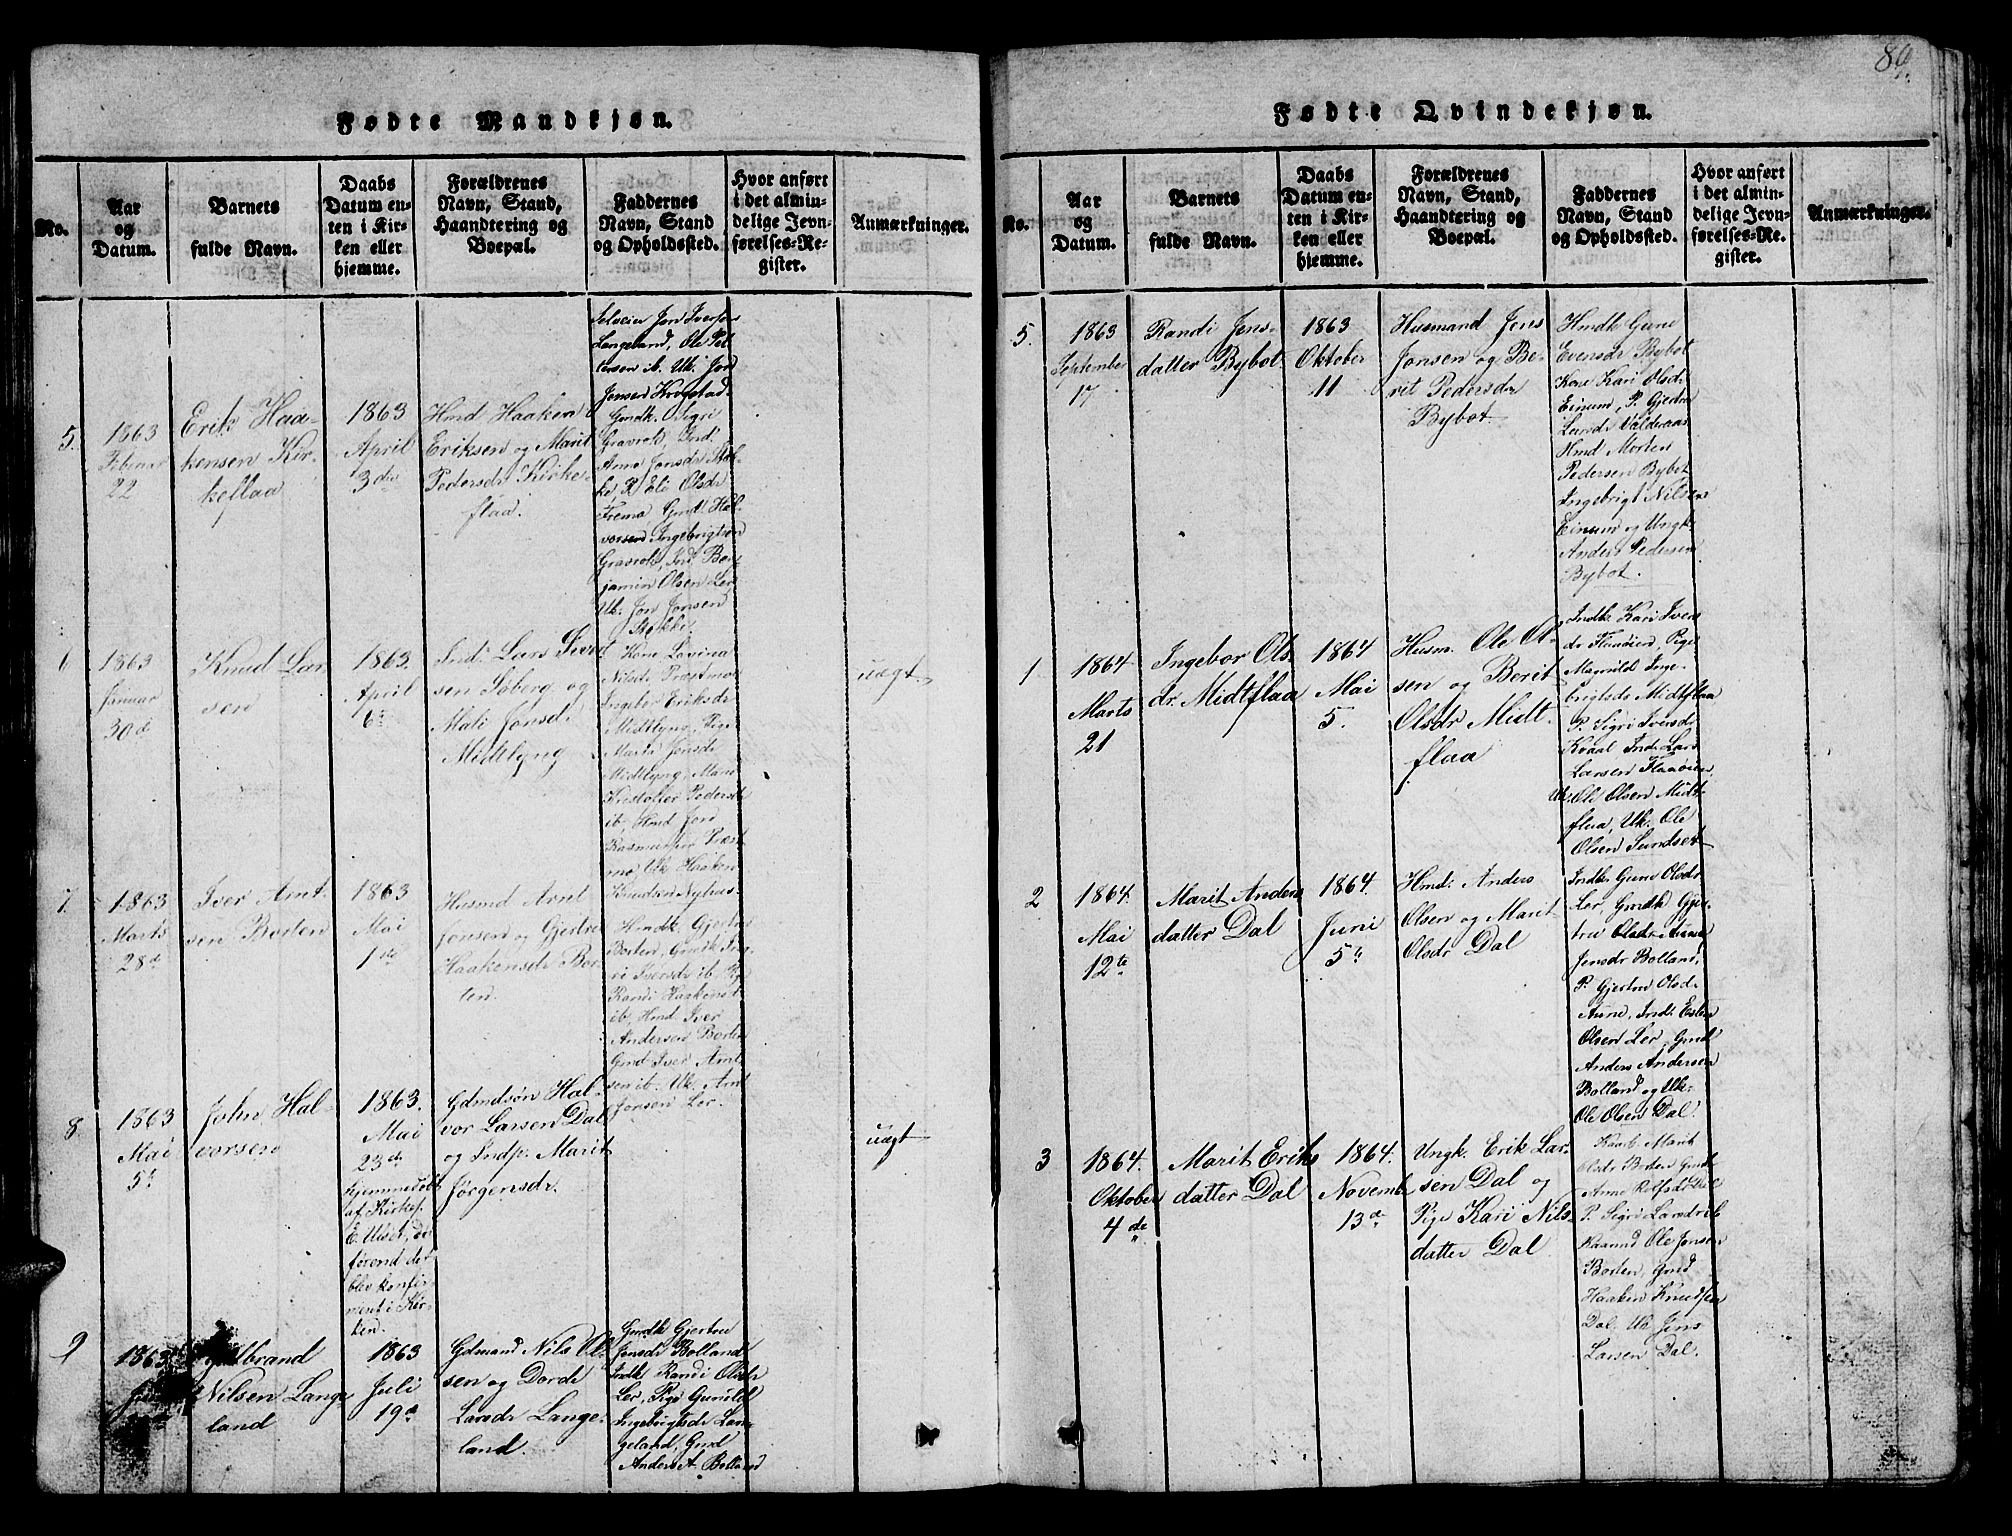 89.
Fødte Mandkjøn.
No.
Aar
og
Datum.
Barnets
fulde Navn.
Daabs
Datum en-
ten i Kir-
ken eller
hjemme.
Forældrenes
Navn, Stand,
Haandtering og
Boepæl.
Faddernes
Navn, Stand
og Opholdssted.
Hvor anført
i det almin-
delige Jevn-
førelses-Re-
gister.
Anmærkninger.
5.
1863
Februar
22
Erik Haa-
kensen Kir-
keflaa
1863
April
3die
Hmd Haaken
Eriksen og Marit
Pedersdr Kirke-
flaa.
Selveier Jon Iversen
Langeland, Ole Pet-
tersen ib. Uk. Jon
Jensen Krogstad
Gmdk. Sigri
Gravrok, Ind.
Anne Jonsdr Stok-
ke, P. Eli Olsdr
Frema Gmd. Hal-
vorsen Ingebrigtson
Gravrok, Ind Ben-
jamin Olsen Ler,
Uk. Jon Jonsen
Stokke
6
1863
Januar
30d
Knud Lar-
sen
1863.
April
6te
Ind. Lars Sivert
sen Soberg og
Mali Jonsdr
Midtlyng
Kone Lavina
Nilsdr Præstmo
Ingeber Eriksdr
Midtlyng, Pige
Marta Jonsdr
Midtlyng, Mand
Kristoffer Pederse
ib, Hmd Jon
Rasmussen Præst
mo, Uk Haaken
Knudsen Nyhus
uægt
7.
1863
Marts
28d
Iver Arnt-
sen Borten
1863
Mai
1ste
Husmd Arnt
Jonsen og Gjertru
Haakensdr Bor-
ten.
Hmdk Gjertru
Borten, Gmdk Sig-
ri Iversdr ib, Pig
Randi Haakensd
ib, Hmd. Iver
Andersen Borten
Gmd Iver Arnt
sen ib. Uk. Arnt
Jonsen Ler.
8
1863
Mai
5te
John Hal-
vorsen
1863.
Mai
23de
hjemmedøbt
af Kirkes.
E. Uset, de
førend det
blev konfir-
meret i Kir-
ken.
Gdmdsøn Hal-
vor Larsen Dal
og Indp. Marit
Jørgensdr.
uægt
9
1863
Gulbrand
Nilsen Lange
land
1863
Juli
19d
Gdmand Nils Ol-
sen og Dorde
Larsdr Lange-
land.
Gmdk Gjertru
Jensdr Bolland
Indk Randi Olsdr
Ler, Pige Gunild
Ingebrigtsdr Lan-
geland, Gmd
Anders A. Bolland
Fødte Qvindekjøn.
No.
Aar
og
Datum.
Barnets
fulde Navn.
Daabs
Datum en-
ten i Kir-
ken eller
hjemme.
Forældrenes
Navn, Stand,
Haandtering og
Boepæl.
Faddernes
Navn, Stand
og Opholdssted.
Hvor anført
i det almin-
delige Jevn-
førelses-Re-
gister.
Anmærkninger.
5.
1863
September
17
Randi Jens-
datter Bybot
1863
Oktober
11
Husmand Jens
Jonsen og Be-
rit Pedersdr
Bybot
Hmdk Gune
Evensdr Bybot
Kone Kari Olsdr
Einum, P. Gjertru
Larsdr Valderaas
Hmd Morten
Pedersen Bybot
Ingebrigt Nilsen
Einum og Ungk
Anders Pedersen
Bybot.
1
1864
Marts
21
Ingebor Ols-
dr. Midtflaa
1864
Mai
5.
Husm. Ole Ol-
sen og Berit
Olsdr Midt-
flaa
Indk Kari Ivers
dr Flaaøien, Pige
Magnild Inge-
brigtsdr Midtflaa
P. Sigri Iversdr
Kvaal Ind. Lars
Larsen Flaaøien,
Uk. Ole Olsen Midt-
flaa, Uk. Ole
Olsen Sundset
2
1864.
Mai
12te
Marit Anders
datter Dal
1864.
Juni
5te
Hmd. Anders
Olsen og Marit
Olsdr Dal
Indk. Gune Olsdr
Ler Gmdk Gjer-
tru Olsdr Aune
Jensdr Bolland,
P. Gjertru Olsd-
Aune, Ind. Esten
Olsen Ler, Gmd
Anders Andersen
Bolland og Uk.
Ole Olsen Dal.
3
1864.
Oktober
4de
Marit Eriks
datter Dal
1864.
Novemb
13de
Ungk. Erik Lar-
sen Dal og
Pige Kari Nils-
datter Dal
Kaark Marit
Olsdr Borten Gmdk
Arne Rolfsdr Dal
P. Sigri Larsdr ib
Kaarmd Ole Jonsen
Borten, Gmd
Haaken Knudsen
Dal, Uk Jens
Larsen Dal.